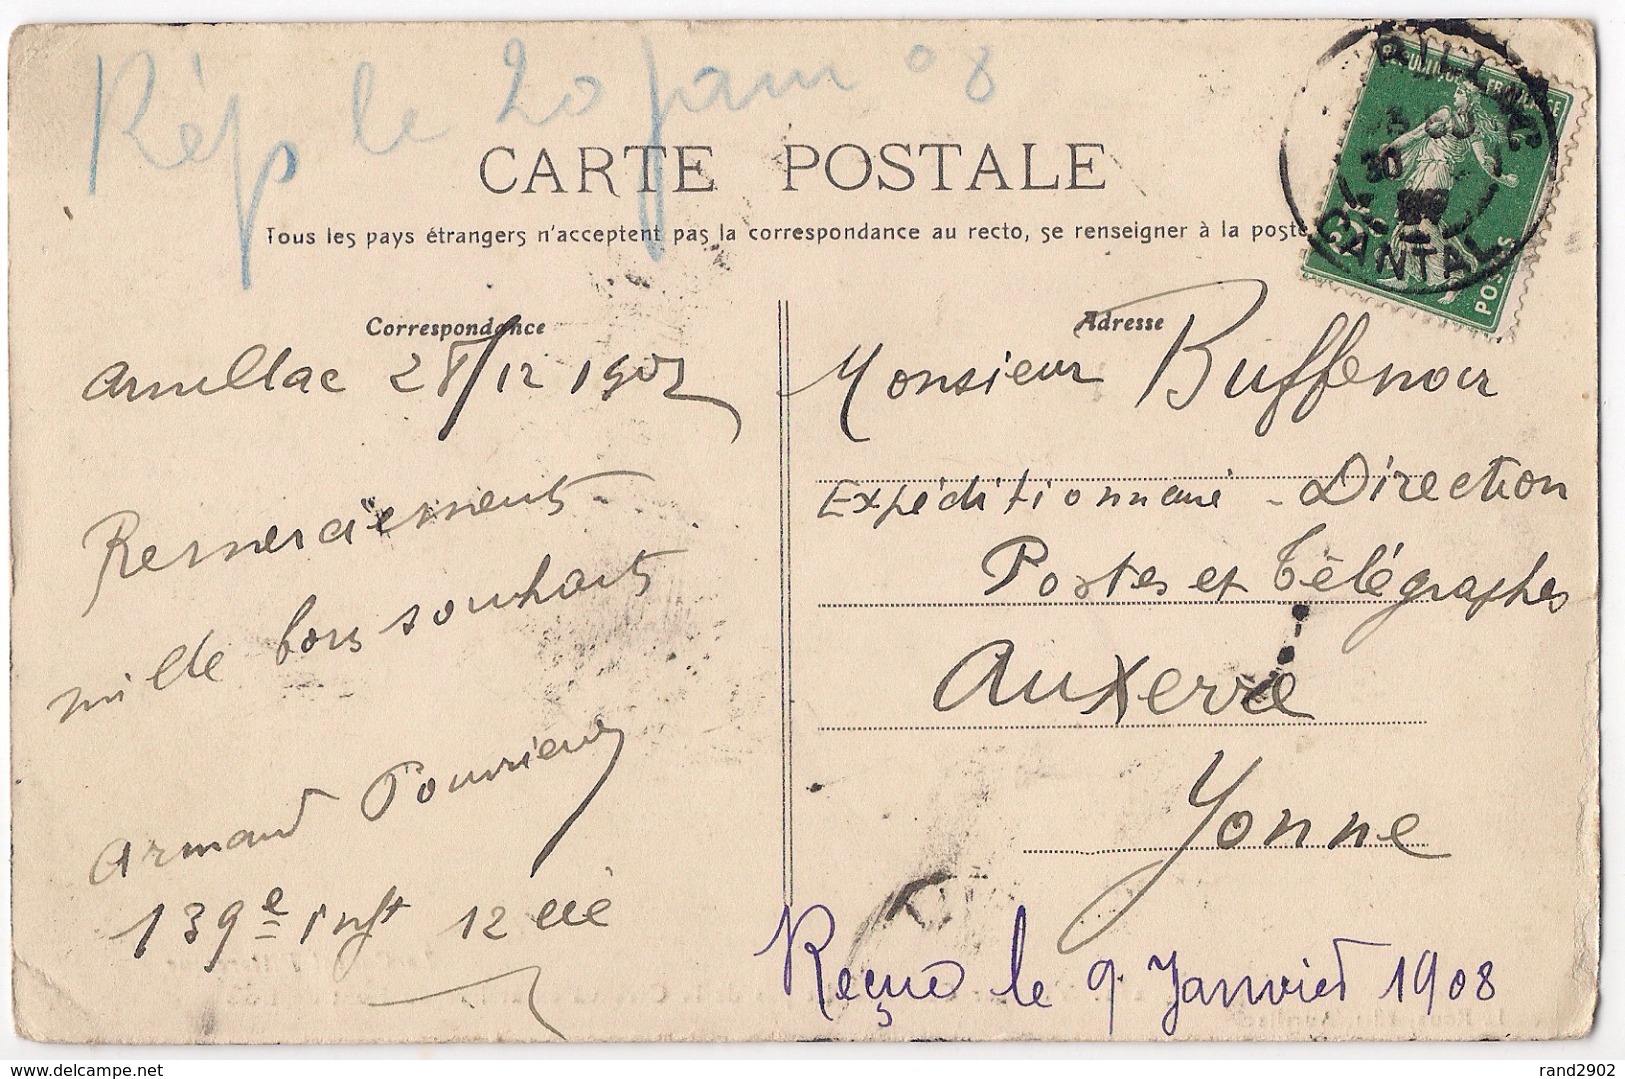 Rép le 20 janv 08
CARTE POSTALE
Tous les pays étrangers n'acceptent pas la correspondance au recto, se renseigner à la poste
Correspondance
Aurillac 28/12 1907
Remerciements
mille bons souhaits
Armand
139e Inft 12 Cie
Adresse
Monsieur Buffenoir
Expéditionnaire - Direction
Postes et Télégraphes
Auxerre
Yonne
Reçue le 9 Janvier 1908
30
CANTAL
POSTES
rand2902